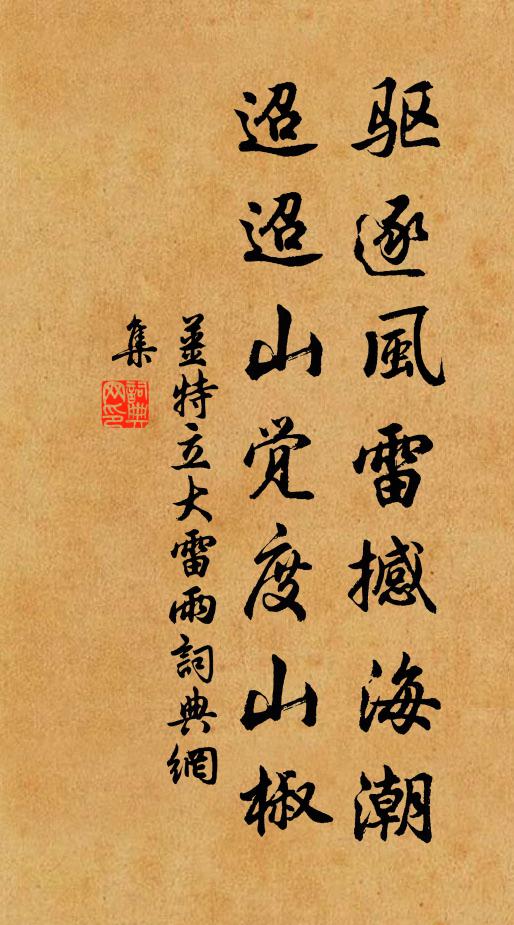 驱逐風雷撼海潮
迢迢山觉度山椒
姜特立大雷雨詞典網
集
詞典
网印